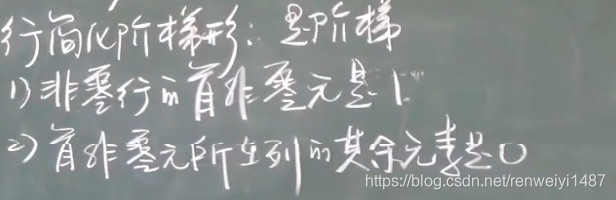 行简化阶梯形：是阶梯
1)非零行的首非零元是1.
2)首非零元所在列的其余元素是0
https://blog.csdn.net/renweiyi1487